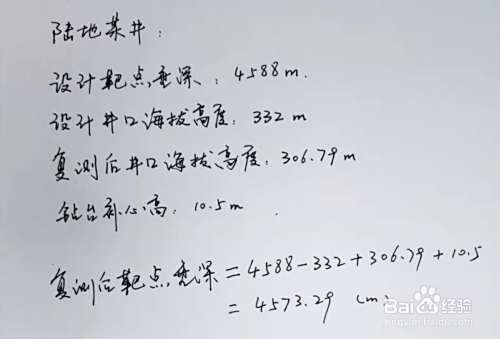 陆地某井：
设计靶点垂深：4588m.
设计井口海拔高度：332m
复测后井口海拔高度：306.79m
钻台补心高：10.5m.
复测后靶点垂深=4588-332+306.79+10.5
=4573.29 (m)
Baidu经验
jingyan.baidu.com